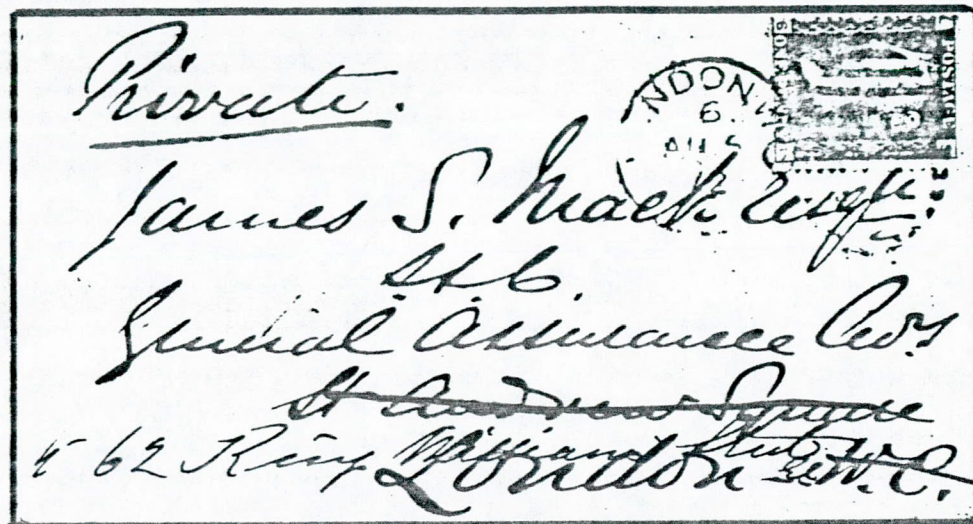 Private.
NDON
6
James S. Mack Esqr:
General Assurance Co's
St Andrew Square
62 King William Street
London W.C.
POSTAGE